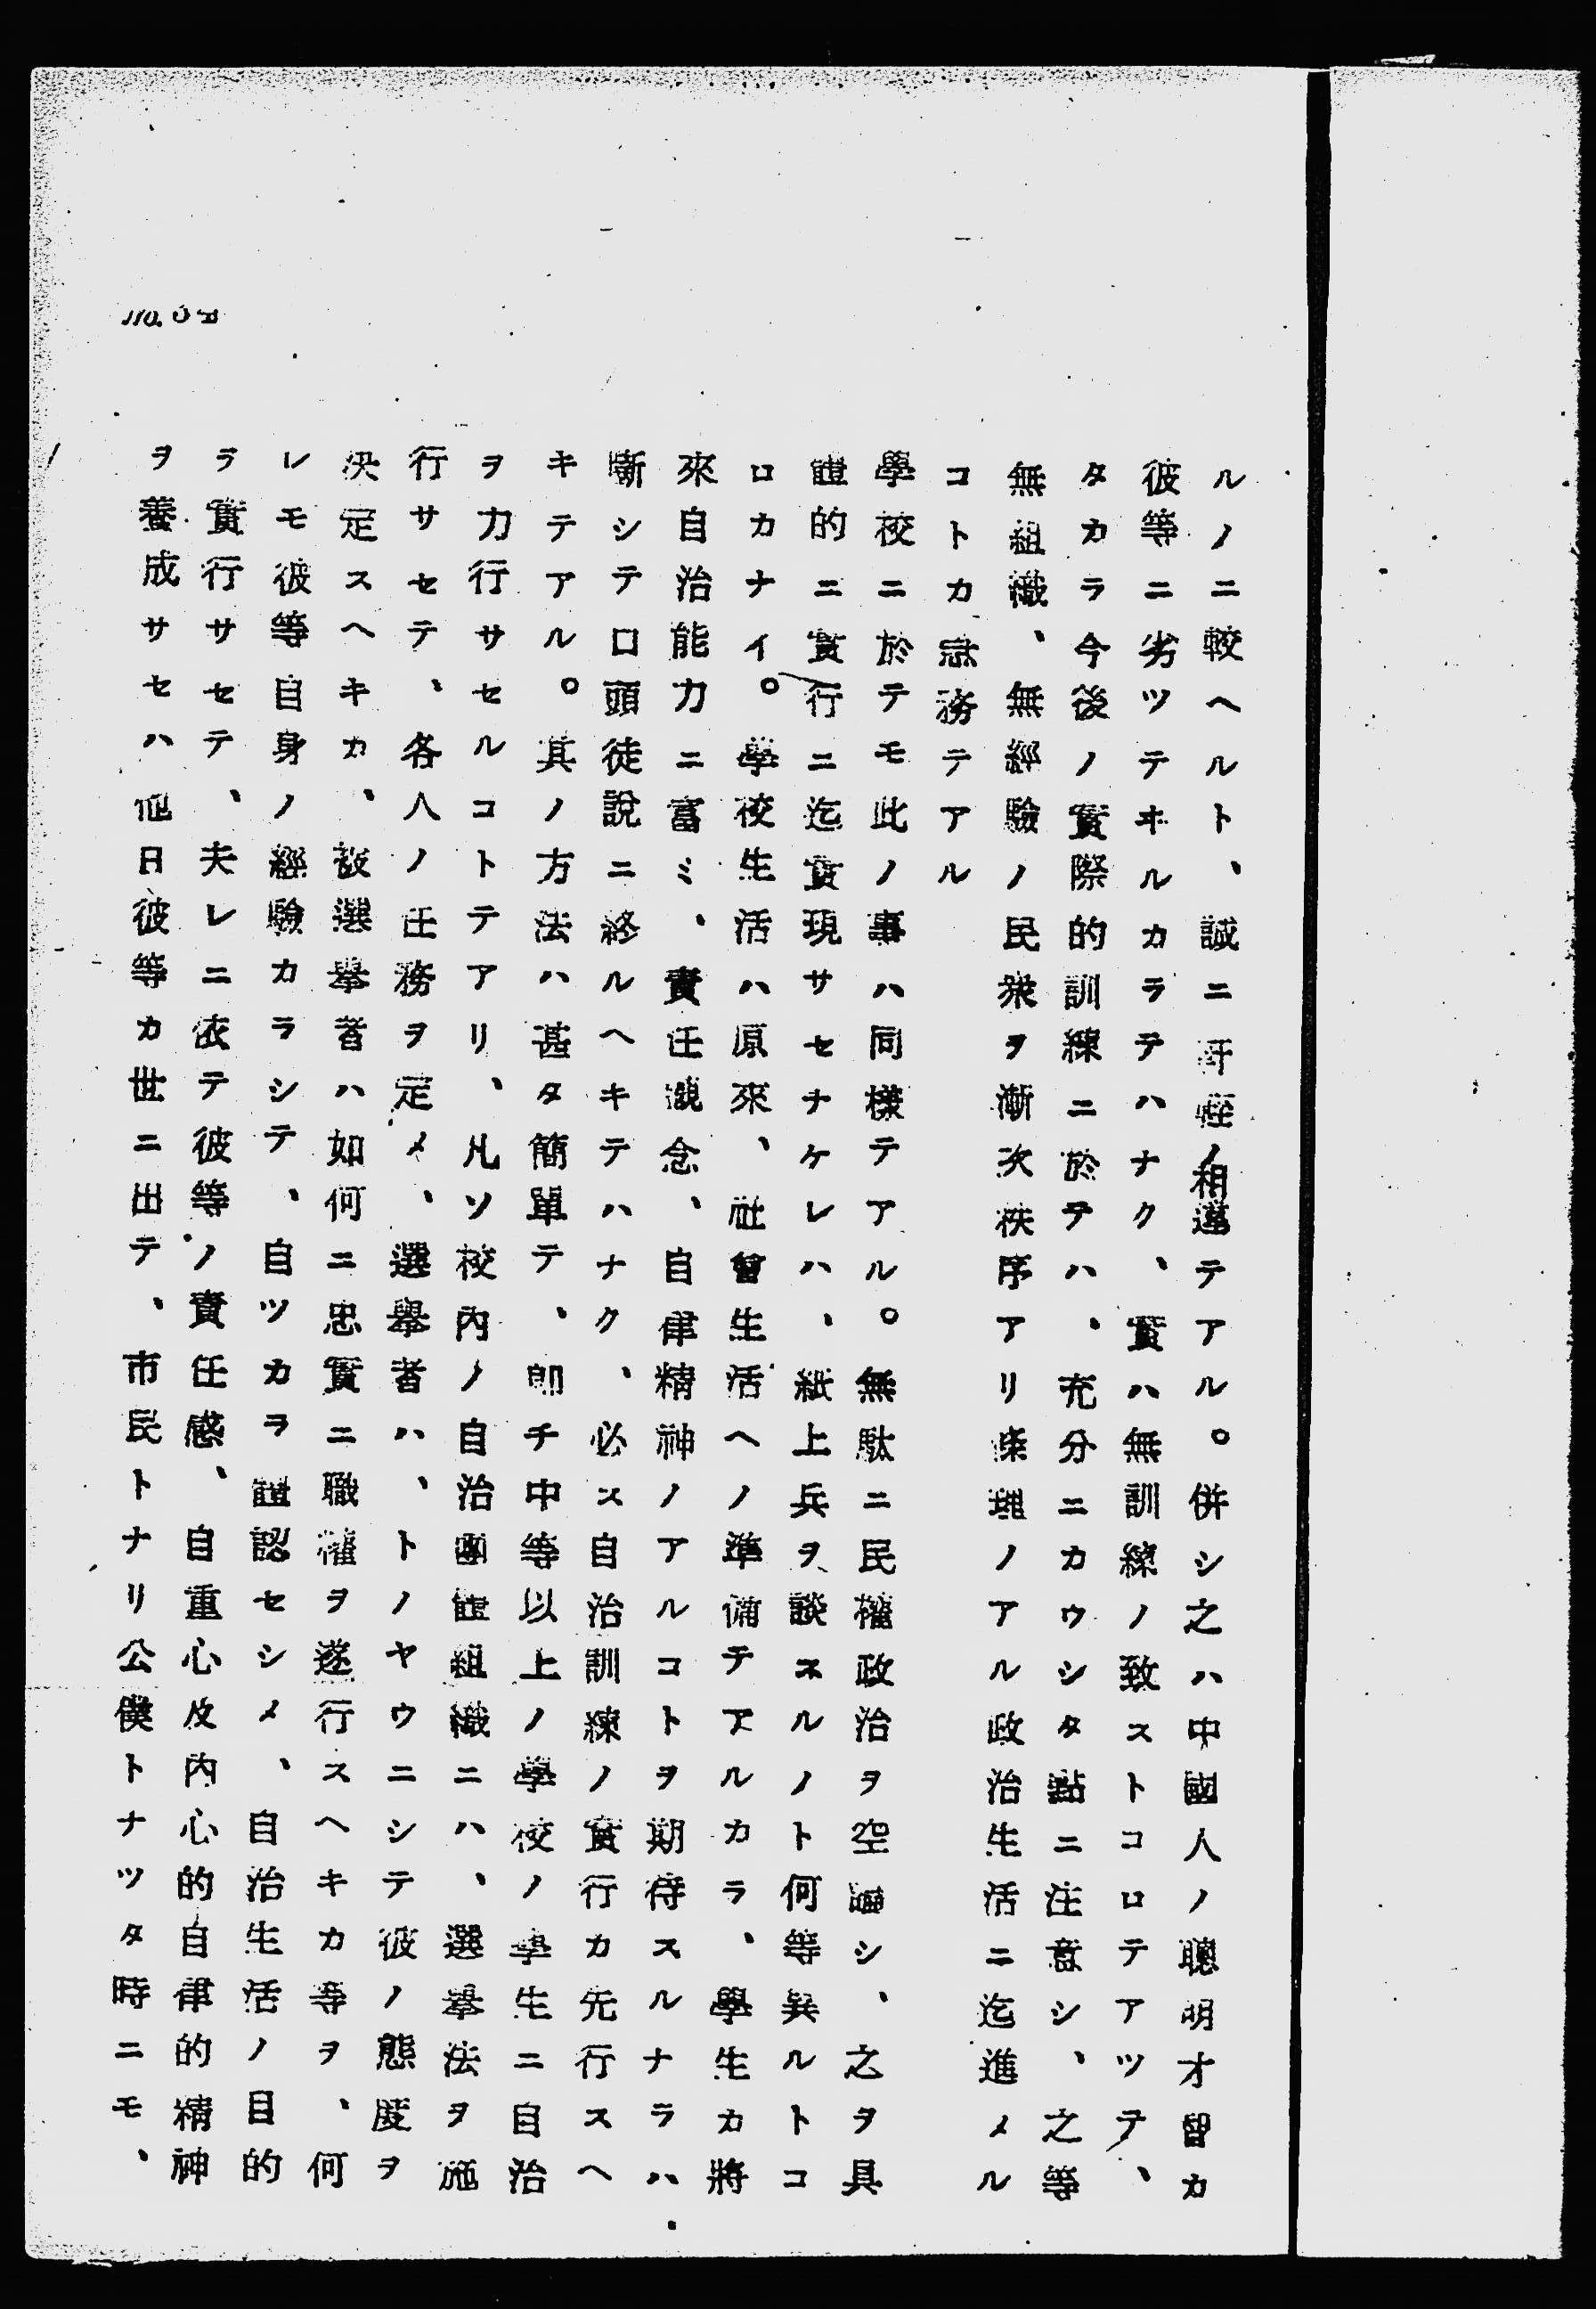 ルノニ較ヘルト、誠ニ霄壤ノ相違テアル。併シ之ハ中國人ノ聰明才智カ
彼等ニ劣ツテヰルカラテハナク、實ハ無訓練ノ致ストコロテアツテ、
タカラ今後ノ實際的訓練ニ於テハ、充分ニカウシタ點ニ注意シ、之等
無組織、無經驗ノ民衆ヲ漸次秩序アリ條理ノアル政治生活ニ迄進メル
コトカ急務テアル
學校ニ於テモ此ノ事ハ同樣テアル。無駄ニ民權政治ヲ空論シ、之ヲ具
體的ニ實行ニ迄實現サセナケレハ、紙上兵ヲ談スルノト何等異ルトコ
ロカナイ。學校生活ハ原來、社會生活ヘノ準備テアルカラ、學生カ將
來自治能力ニ富ミ、責任觀念、自律精神ノアルコトヲ期待スルナラハ
斷シテ口頭徒說ニ終ルヘキテハナク、必ス自治訓練ノ實行カ先行スヘ
キテアル。其ノ方法ハ甚タ簡單テ、卽チ中等以上ノ學校ノ學生ニ自治
ヲ力行サセルコトテアリ、凡ソ校內ノ自治團體組織ニハ、選擧法ヲ施
行サセテ、各人ノ任務ヲ定メ、選擧者ハ、トノヤウニシテ彼ノ態度ヲ
決定スヘキカ、被選擧者ハ如何ニ忠實ニ職權ヲ遂行スヘキカ等ヲ、何
レモ彼等自身ノ經驗カラシテ、自ツカラ體認セシメ、自治生活ノ目的
ヲ實行サセテ、夫レニ依テ彼等ノ責任感、自重心及內心的自律的精神
ヲ養成サセハ他日彼等カ世ニ出テ、市民トナリ公僕トナツタ時ニモ、